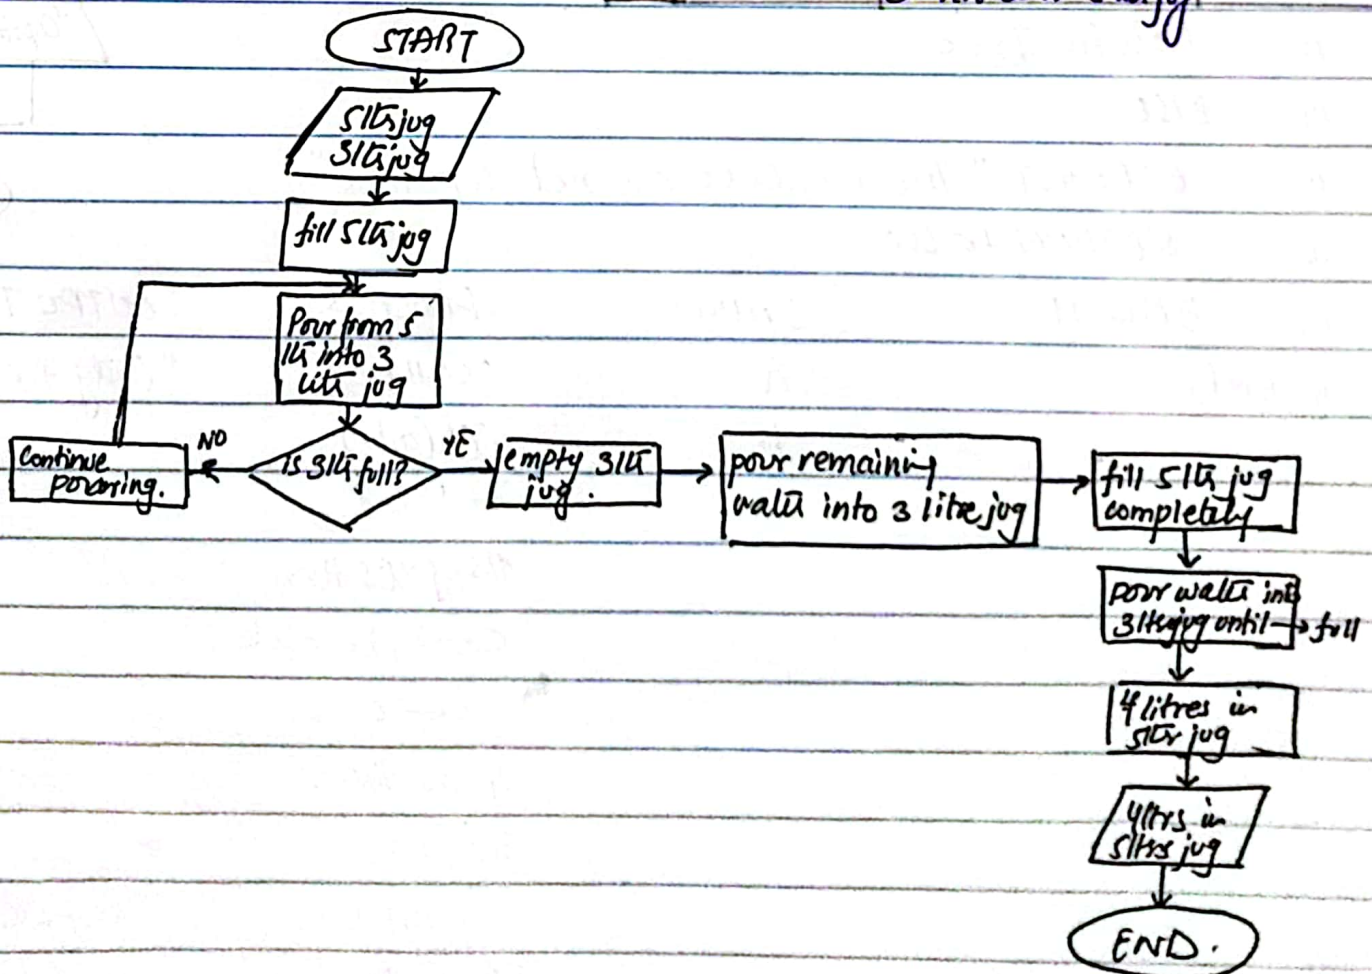 START
5ltrs jug
3ltrs jug
fill 5ltrs jug
Pour from 5
ltr into 3
litr jug
is 3ltr full?
NO
continue
pouring.
YE
empty 3ltr
jug.
pour remaining
water into 3 litre jug
fill 5ltrs jug
completely
pour water into
3ltrs jug until → full
4 litres in
5ltr jug
4ltrs in
5ltrs jug
END.